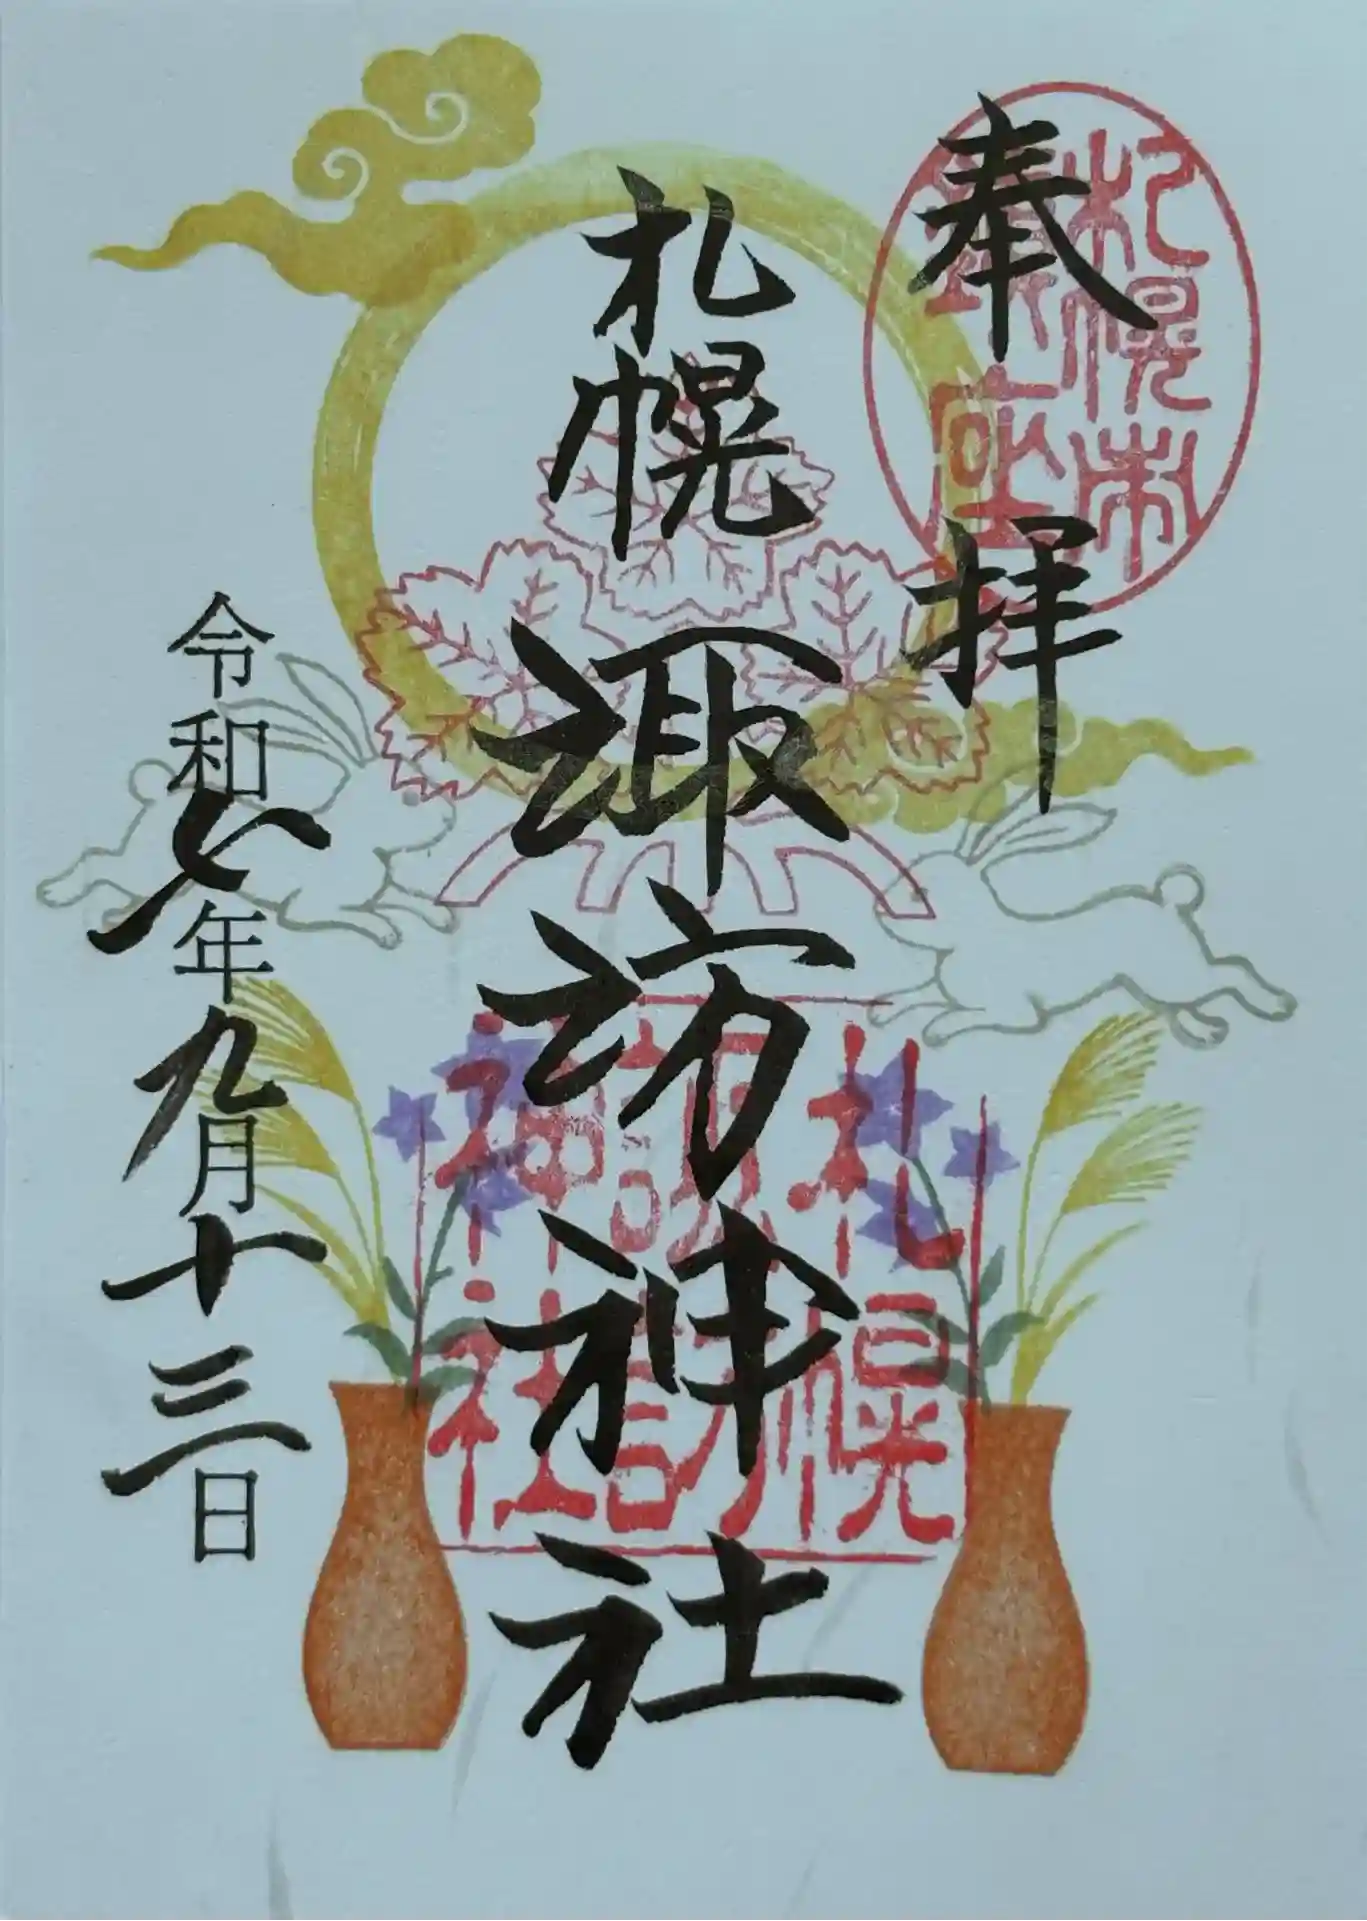 奉拝
札幌市
鎮座
札幌諏訪神社
札幌
諏訪
神社
令和七年九月十三日